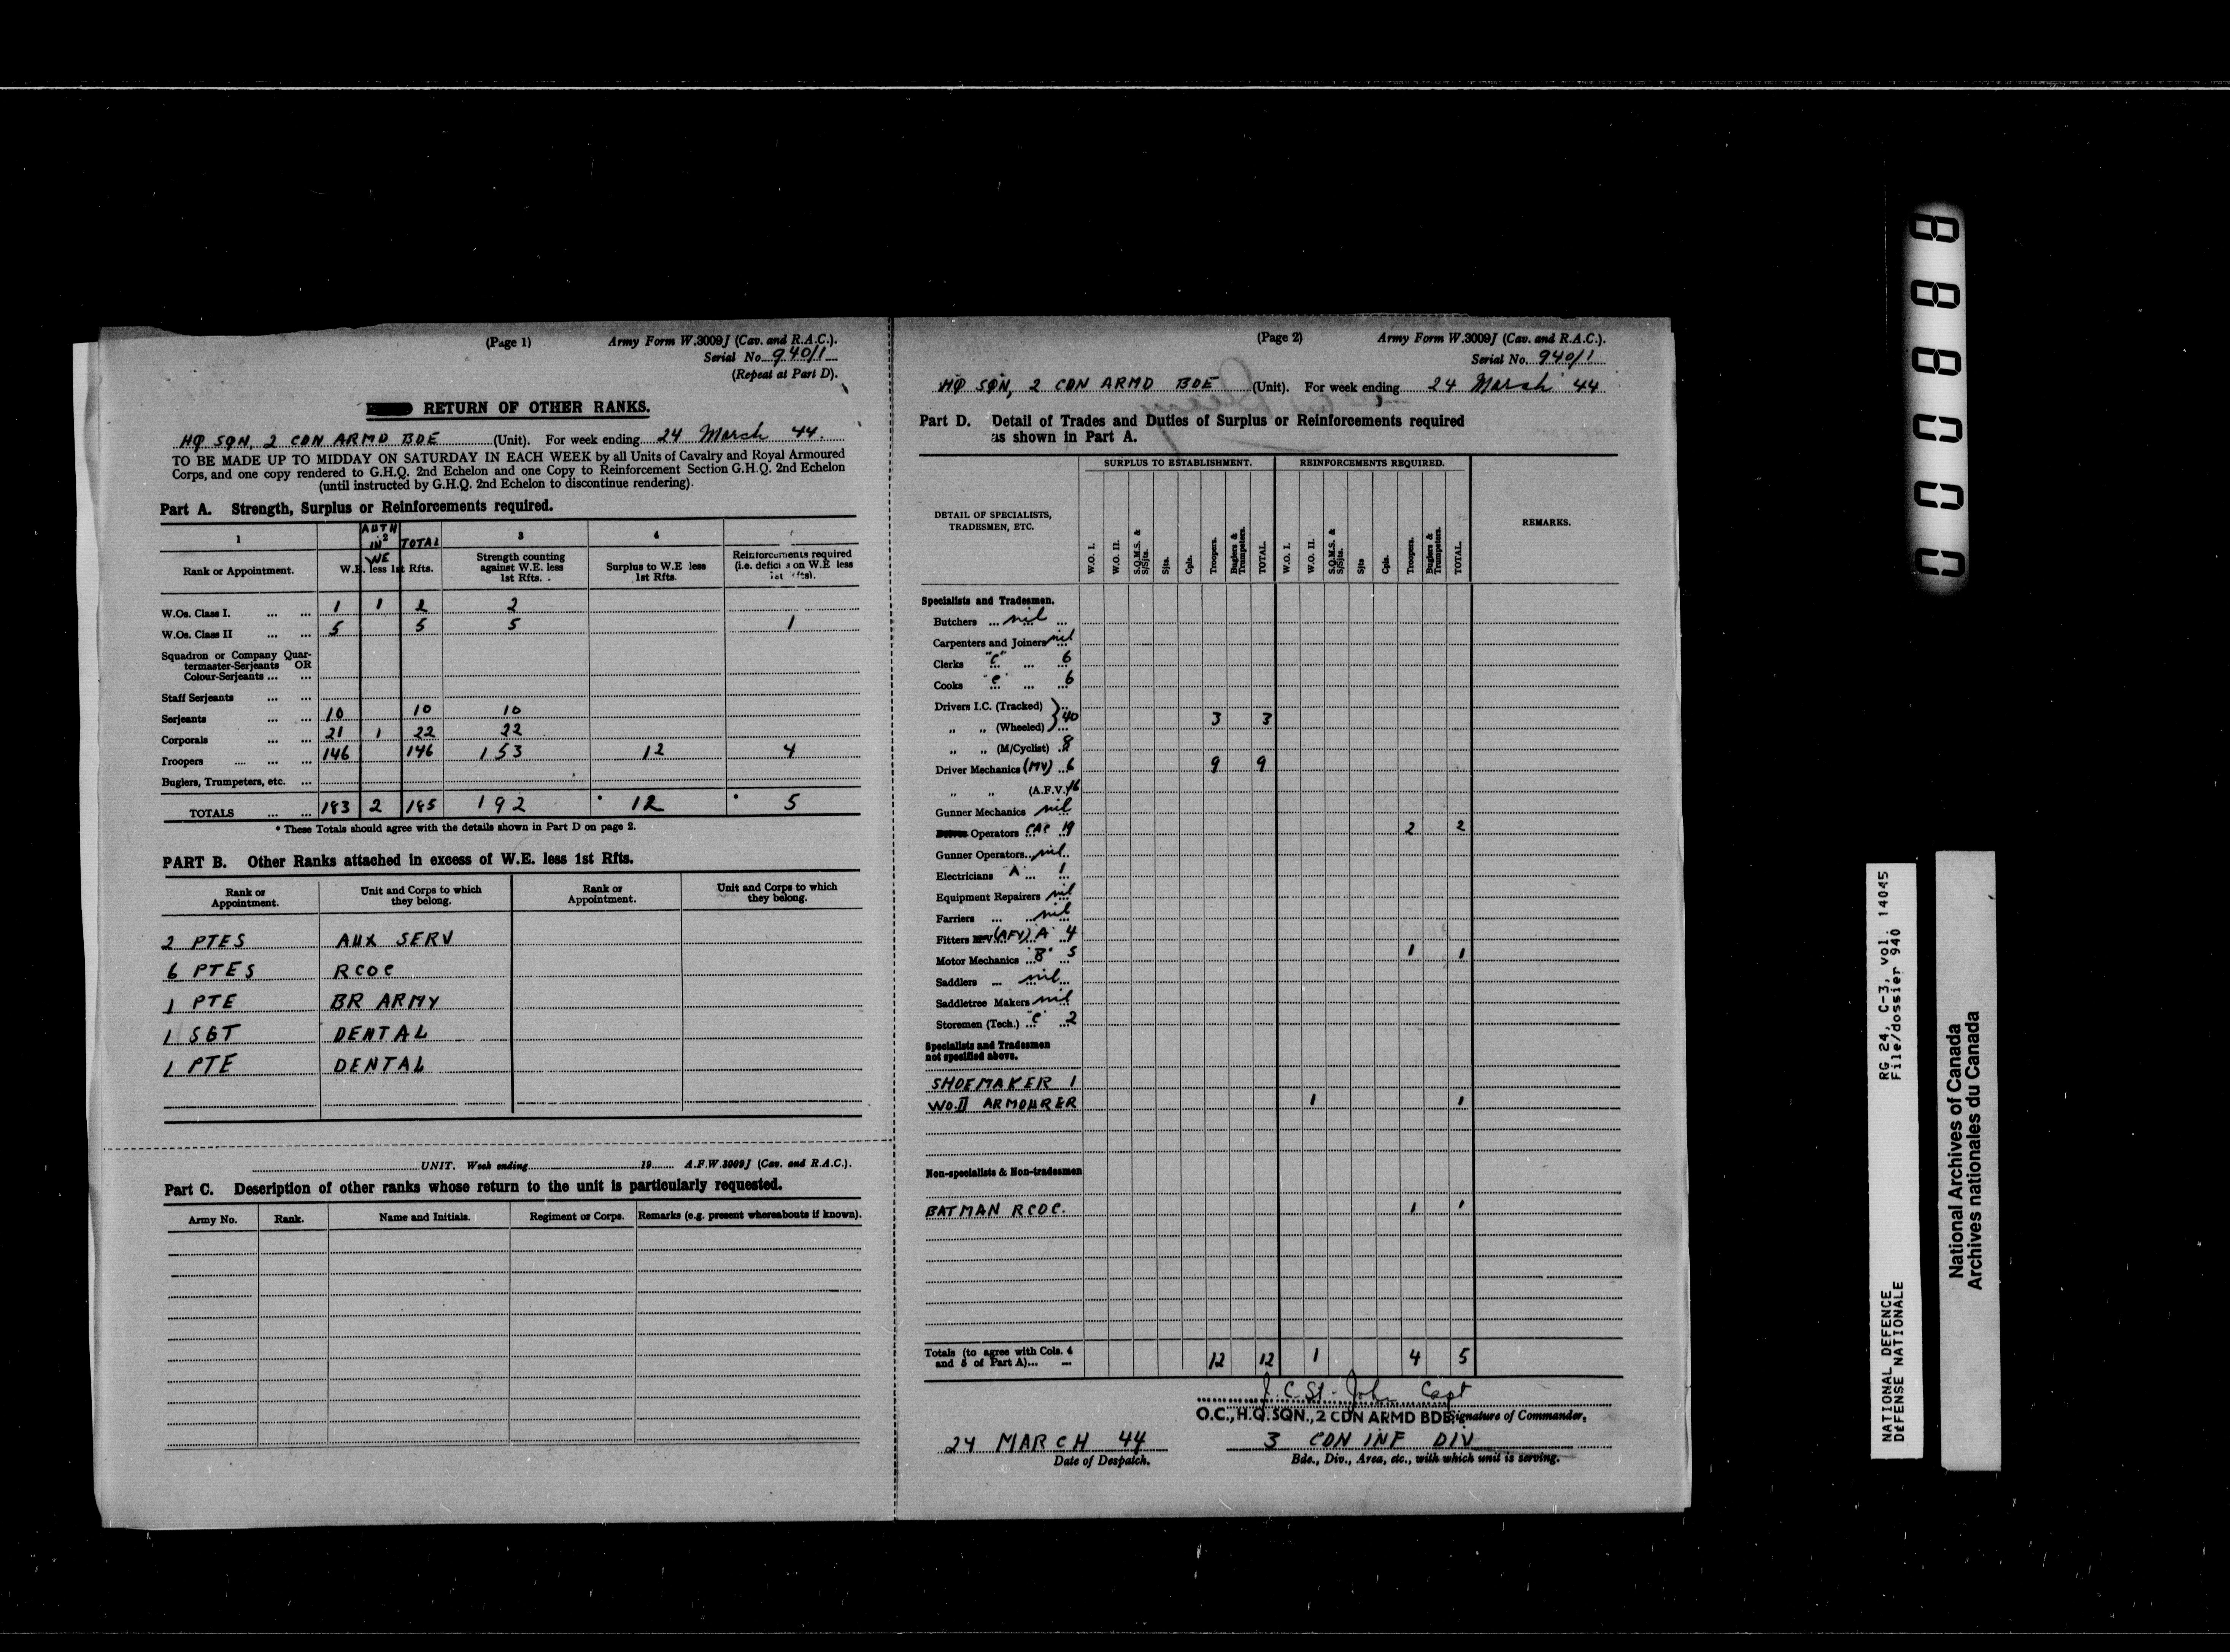 (Page 1) Army Form W.3009J (Cav. and R.A.C.).
Serial No. 940/1
(Repeat at Part D).
RETURN OF OTHER RANKS.
HQ SQN, 2 CDN ARMD BDE (Unit). For week ending 24 March 44.
TO BE MADE UP TO MIDDAY ON SATURDAY IN EACH WEEK by all Units of Cavalry and Royal Armoured
Corps, and one copy rendered to G.H.Q. 2nd Echelon and one Copy to Reinforcement Section G.H.Q. 2nd Echelon
(until instructed by G.H.Q. 2nd Echelon to discontinue rendering).
Part A. Strength, Surplus or Reinforcements required.
1 AUTH IN 2 WE TOTAL 3 4
Rank or Appointment. W.E. less 1st Rfts. Strength counting against W.E. less 1st Rfts. Surplus to W.E less 1st Rfts. Reinforcements required (i.e. on W.E less 1st Rfts).
W.Os. Class I. ... ... 1 1 2 2
W.Os. Class II ... ... 5 5 5 1
Squadron or Company Quar-
termaster-Serjeants OR
Colour-Serjeants ... ...
Staff Serjeants ... ...
Serjeants ... ... 10 10 10
Corporals ... ... 21 1 22 22
Troopers ... ... ... 146 146 153 12 4
Buglers, Trumpeters, etc. ...
TOTALS ... ... 183 2 185 192 * 12 * 5
* These Totals should agree with the details shown in Part D on page 2.
PART B. Other Ranks attached in excess of W.E. less 1st Rfts.
Rank or Appointment. Unit and Corps to which they belong. Rank or Appointment. Unit and Corps to which they belong.
2 PTES AUX SERV
6 PTES RCOC
1 PTE BR ARMY
1 SGT DENTAL
1 PTE DENTAL
UNIT. Week ending 19 A.F.W.3009J (Cav. and R.A.C.).
Part C. Description of other ranks whose return to the unit is particularly requested.
Army No. Rank. Name and Initials. Regiment or Corps. Remarks (e.g. present whereabouts if known).
(Page 2) Army Form W.3009J (Cav. and R.A.C.).
Serial No. 940/1
HQ SQN, 2 CDN ARMD BDE (Unit). For week ending 24 March 44
Part D. Detail of Trades and Duties of Surplus or Reinforcements required
as shown in Part A.
SURPLUS TO ESTABLISHMENT. REINFORCEMENTS REQUIRED.
DETAIL OF SPECIALISTS, TRADESMEN, ETC. REMARKS.
W.O. I. W.O. II. S.Q.M.S. & S/Sjts. Sjts. Cpls. Troopers. Buglers & Trumpeters. TOTAL. W.O. I. W.O. II. S.Q.M.S. & S/Sjts. Sjts Cpls. Troopers. Buglers & Trumpeters. TOTAL.
Specialists and Tradesmen.
Butchers ... nil ...
Carpenters and Joiners nil
Clerks "C" ... 6
Cooks "C" ... 6
Drivers I.C. (Tracked) } 40
„ „ (Wheeled) } 3 3
„ „ (M/Cyclist) 8
Driver Mechanics (MV) 6 9 9
„ „ (A.F.V.) 16
Gunner Mechanics nil
Operators 19 2 2
Gunner Operators nil
Electricians "A" ... 1
Equipment Repairers nil
Farriers ... nil
Fitters M.V. (AFV) "A" 4
Motor Mechanics "B" 5 1 1
Saddlers ... nil
Saddletree Makers nil
Storemen (Tech.) "C" 2
Specialists and Tradesmen
not specified above.
SHOEMAKER 1
WO.II ARMOURER 1 1
Non-specialists & Non-tradesmen
BATMAN RCOC. 1 1
Totals (to agree with Cols. 4
and 5 of Part A)... ... 12 12 1 4 5
J. C. St-John Capt
O.C., H.Q. SQN., 2 CDN ARMD BDE. Signature of Commander,
24 MARCH 44 3 CDN INF DIV
Date of Despatch. Bde., Div., Area, etc., with which unit is serving.
000088
RG 24, C-3, vol. 14045
File/dossier 940
NATIONAL DEFENCE
DÉFENSE NATIONALE
National Archives of Canada
Archives nationales du Canada